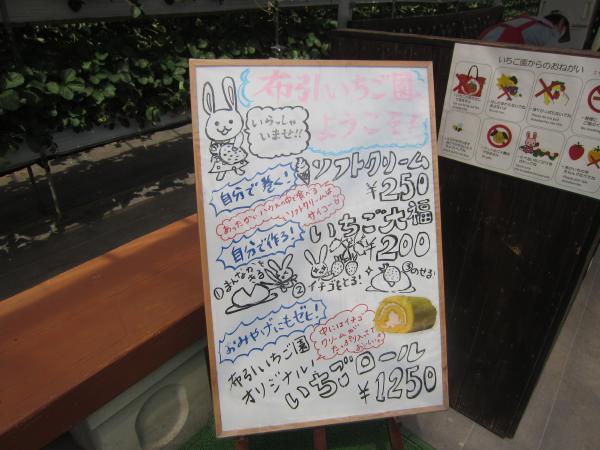 布引いちご園へ
ようこそ!
いらっしゃ
いませ!!
ソフトクリーム
¥250
自分で巻く!
あったかいハウスの中で食べる
ソフトクリームは
サイコー
自分で作ろ!
いちご大福
¥200
①まんなかを
きる
②イチゴをとる!
③のせる!
おみやげにもゼヒ!
中にはイチゴ
クリームが
たっぷり入ってて
おいしい
布引いちご園
オリジナル!
いちごロール
¥1250
いちご園からのおねがい